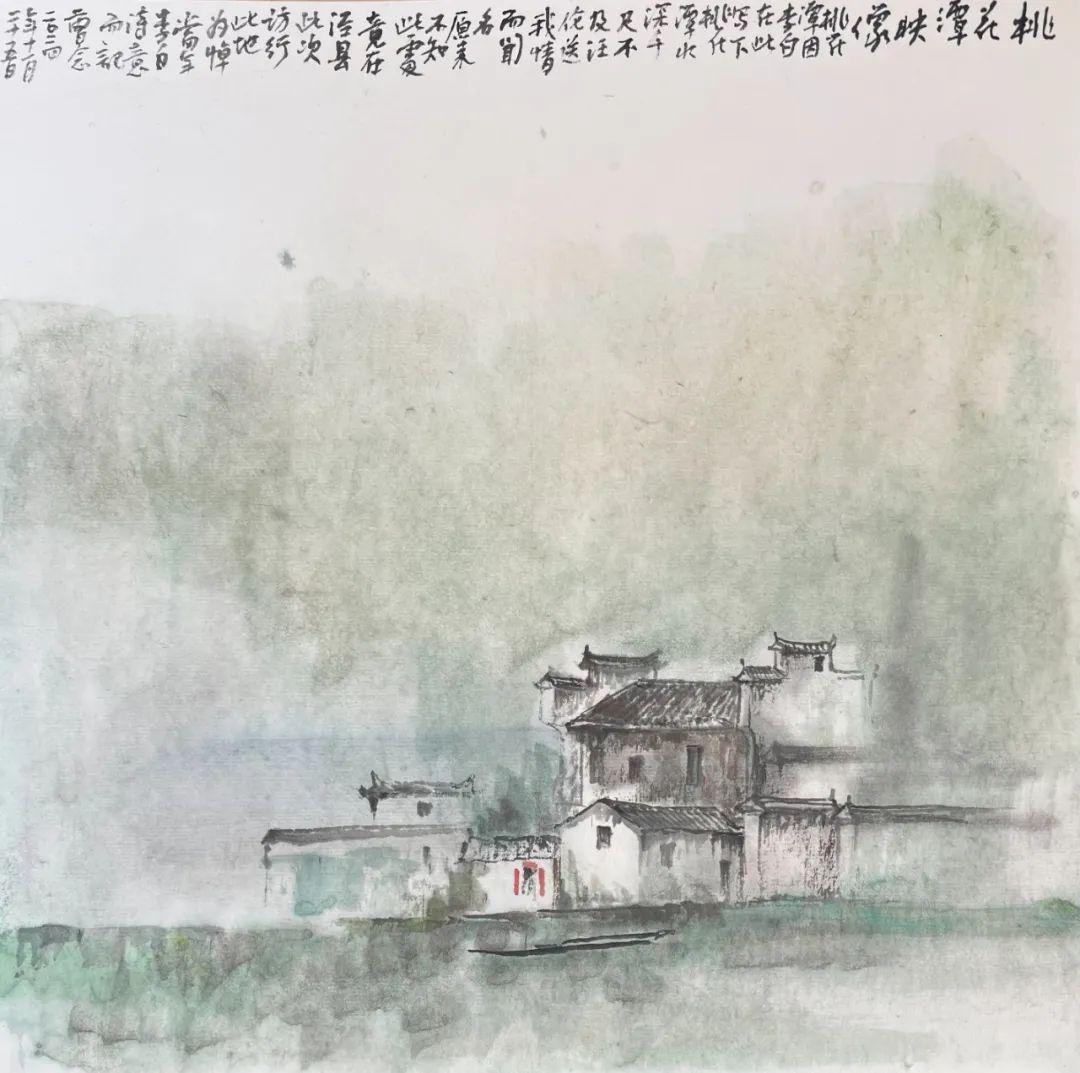 桃花潭映像
桃花
潭因
李白
在此
写下
桃花
潭水
深千
尺不
及汪
伦送
我情
而闻
名
原来
不知
此处
竟在
泾县
此次
访行
此地
为悼
当年
李白
诗意
而记
曾念
二〇二四
年十一月